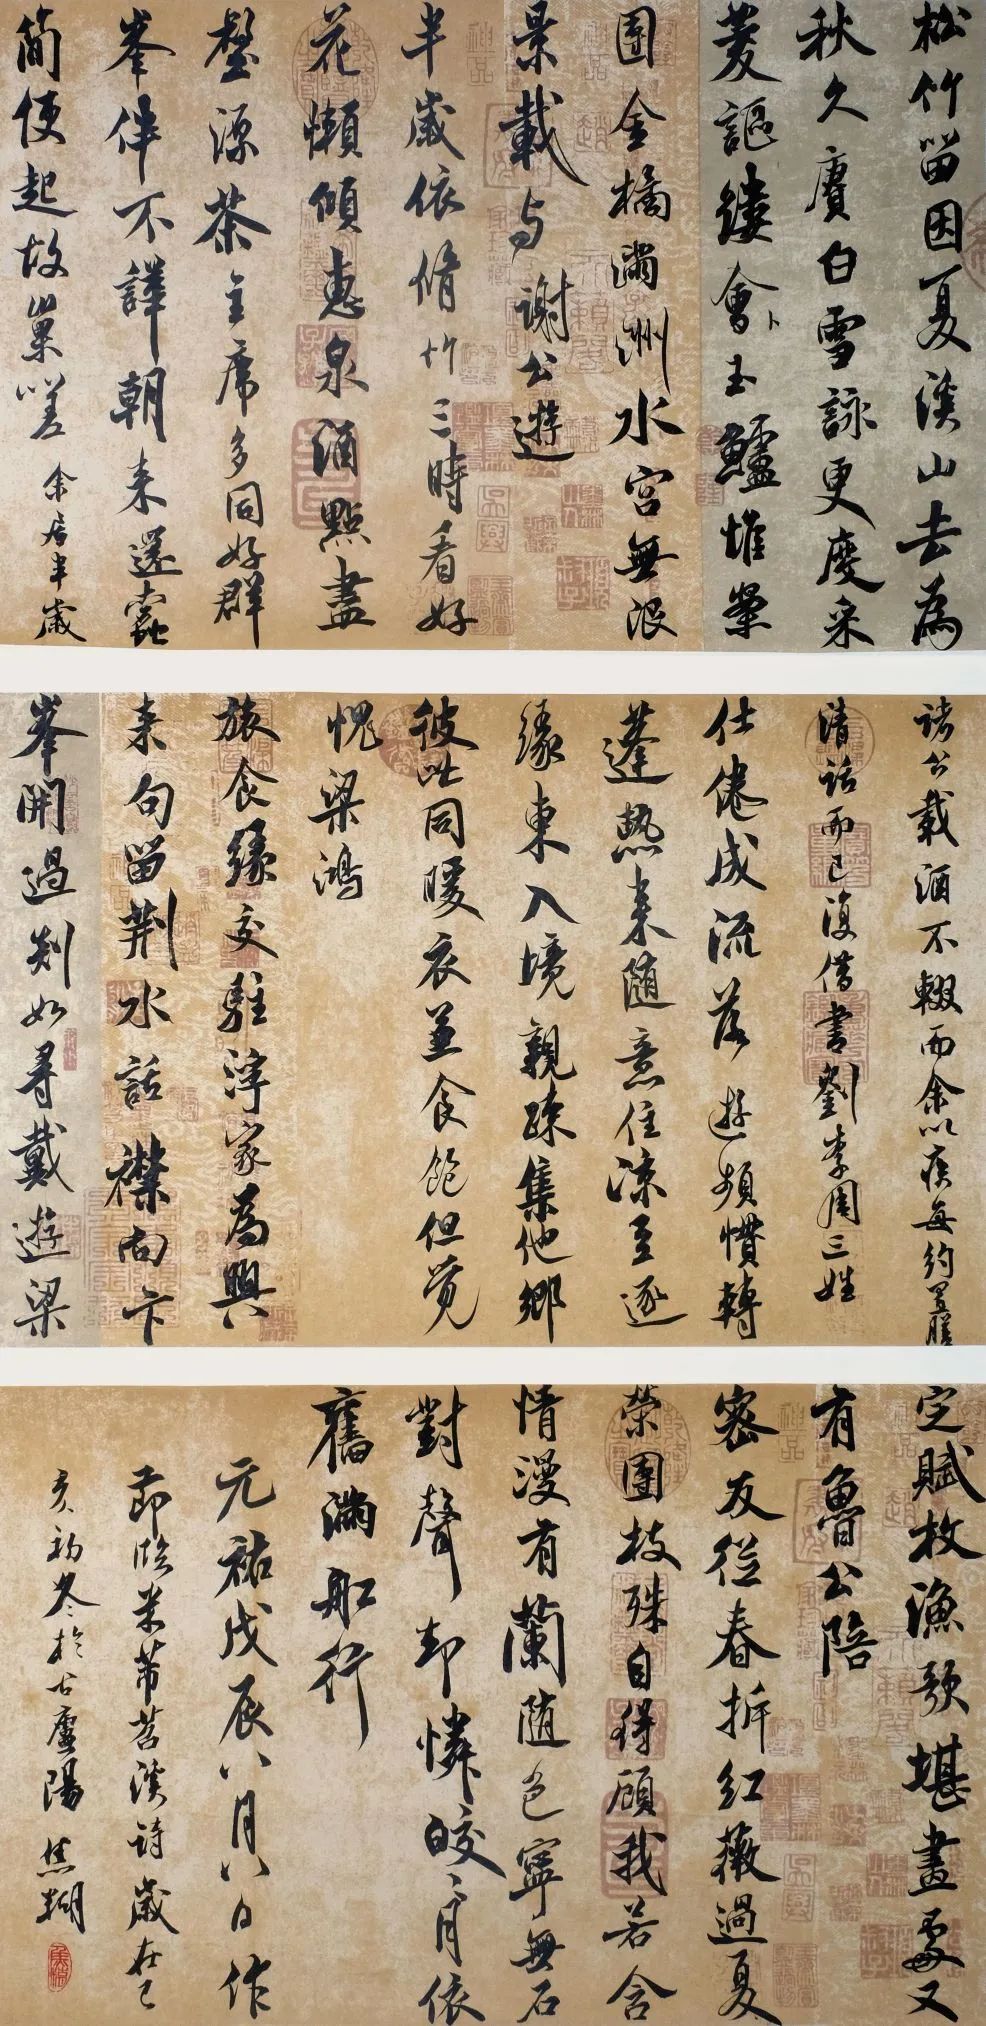 松竹留因夏溪山去為
秋久賡白雪詠更度采
菱謳縷會卜玉鱸堆案
團金橘滿洲水宮無限
景載与謝公遊
半歲依脩竹三時看好
花懶傾惠泉酒點盡
壑源茶主席多同好群
峯伴不譁朝来還蠹
簡便起故巢嗟余居半歲
諸公載酒不輟而余以疾每約置膳
清話而已復借書劉李周三姓
仕倦成流落遊頻慣轉
蓬熱来随意住涼至逐
緣東入境親疎集他鄉
彼此同暖衣兼食飽但覺
愧梁鴻
旅食緣交駐浮家為興
来句留荆水話襟向卞
峯開過剡如尋戴遊梁
定賦枚漁歌堪畫處又
有魯公陪
密友從春拆紅薇過夏
榮團枝殊自得顧我若含
情漫有蘭随色寧無石
對聲却憐皎、月依
舊滿舡行
元祐戊辰八月八日作
節臨米芾苕溪詩歲在己
亥初冬於古廬陽 焦糊